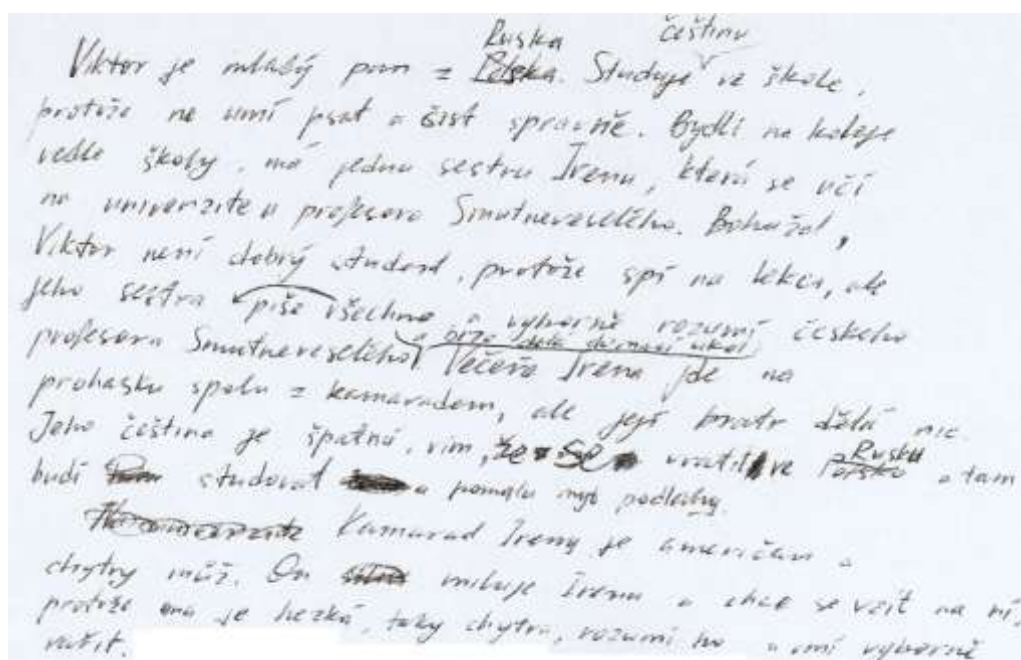 Ruska čeština
Viktor je mladý pan z Polska. Studuje ve škole,
protože ne umí psat a čist spravně. Bydlí na koleje
vedle školy, má jednu sestru Irenu, ktera se učí
na univerzite u profesora Smutneveselého. Bohužel,
Viktor není dobrý student, protože spí na lekci, ale
jeho sestra piše všechno a vyborně rozumí českeho
profesora Smutneveselého a brzo dělá domací ukol Večeře Irena jde na
prohasku spolu z kamaradem, ale její bratr dělá nic.
Jeho čeština je špatná, vim, že se vratil ve Polsko Rusku a tam
budí studovat a pomalu myt podlahy.
Na univerzite Kamarad Ireny je američan a
chytry muž. On miluje Irenu a chce se vzit na ní,
protože ona je hezká, taky chytra, rozumí ho a umí vyborně
vařit.